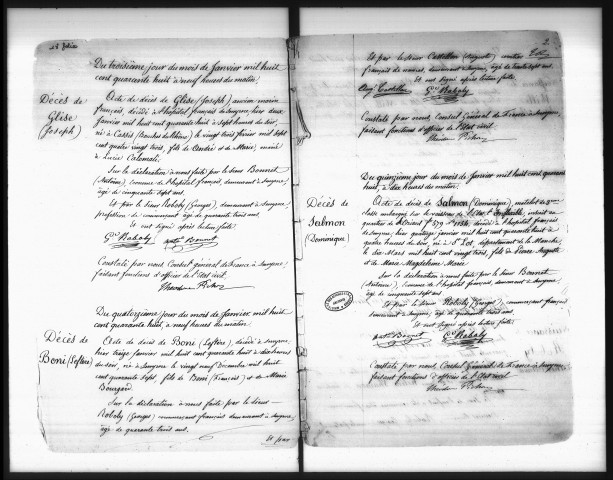 Du troisième jour du mois de Janvier mil huit
cent quarante huit à neuf heures du matin.
Décès de
Glise
(Joseph)
Acte de décès de Glise (Joseph) ancien marin
français, décédé à l'hôpital français de Smyrne, hier deux
Janvier mil huit cent quarante huit à sept heures du soir,
né à Cassis (Bouches du Rhône) le vingt trois février mil sept
cent quatre vingt trois, fils de André et de Marie, marié
à Lucie Calamali.
Sur la déclaration à nous faite par le Sieur Bonnet
(Antoine), économe de l'hôpital français, demeurant à Smyrne,
âgé de cinquante sept ans
Et par le Sieur Roboly (Georges), demeurant à Smyrne,
profession de commerçant âgé de quarante trois ans.
Et ont signé après lecture faite.
Gs Roboly Bonnet
Constaté par nous Consul général de France à Smyrne,
faisant fonctions d'officier de l'Etat civil.
Du quatorzième jour du mois de Janvier, mil huit
cent quarante huit, à neuf heures du matin.
Décès de
Boni (Leftère)
Acte de décès de Boni (Leftère), décédé à Smyrne,
hier treize Janvier mil huit cent quarante huit à dix heures
du soir, né à Smyrne le vingt neuf Décembre mil huit
cent quarante sept, fils de Boni (François) et de Marie
Sur la déclaration à nous faite par le Sieur
Roboly (Georges) commerçant français demeurant à Smyrne,
âgé de quarante trois ans.
Et par
2
Et par le Sieur Castellan (August),
français de Smyrne, demeurant à Smyrne, âgé de
Et ont signé après lecture faite.
Castellan Gs Roboly
Constaté par nous, Consul Général de France à Smyrne,
faisant fonctions d'officier de l'Etat civil
Du quinzième jour du mois de Janvier mil huit cent quarante
huit, à dix heures du matin.
Décès de
Salmon
(Dominique)
Acte de décès de Salmon (Dominique), matelot de 3me
classe embarqué sur le vaisseau de l'Etat, inscrit au
quartier de, décédé à l'hôpital français
de Smyrne, hier quatorze Janvier mil huit cent quarante huit à
quatre heures du soir, né à St Lo, département de la Manche
le dix Mars mil huit cent vingt trois, fils de Pierre Auguste
et de Marie Magdeleine Marie.
Sur la déclaration à nous faite par le Sieur Bonnet
(Antoine), économe de l'hôpital français, demeurant à Smyrne,
âgé de cinquante sept ans
Et par le Sieur Roboly (Georges), commerçant français
demeurant à Smyrne, âgé de quarante trois ans.
Et ont signé après lecture faite.
Bonnet Gs Roboly
Constaté par nous, Consul Général de France à Smyrne,
faisant fonctions d'officier de l'Etat civil